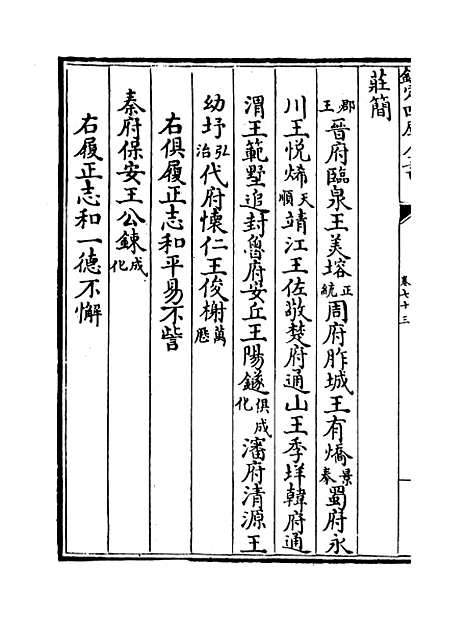 欽定四庫全書
卷七十三
莊簡
郡王晉府臨泉王美塎正統周府胙城王有爋景泰蜀府永
川王悦㷂天順靖江王佐敬楚府通山王季垟韓府通
渭王範墅追封魯府安丘王陽鐩俱成化瀋府清源王
幼㘾弘治代府懷仁王俊榭萬厯
右俱履正志和平易不訾
秦府保安王公鍊成化
右履正志和一德不懈